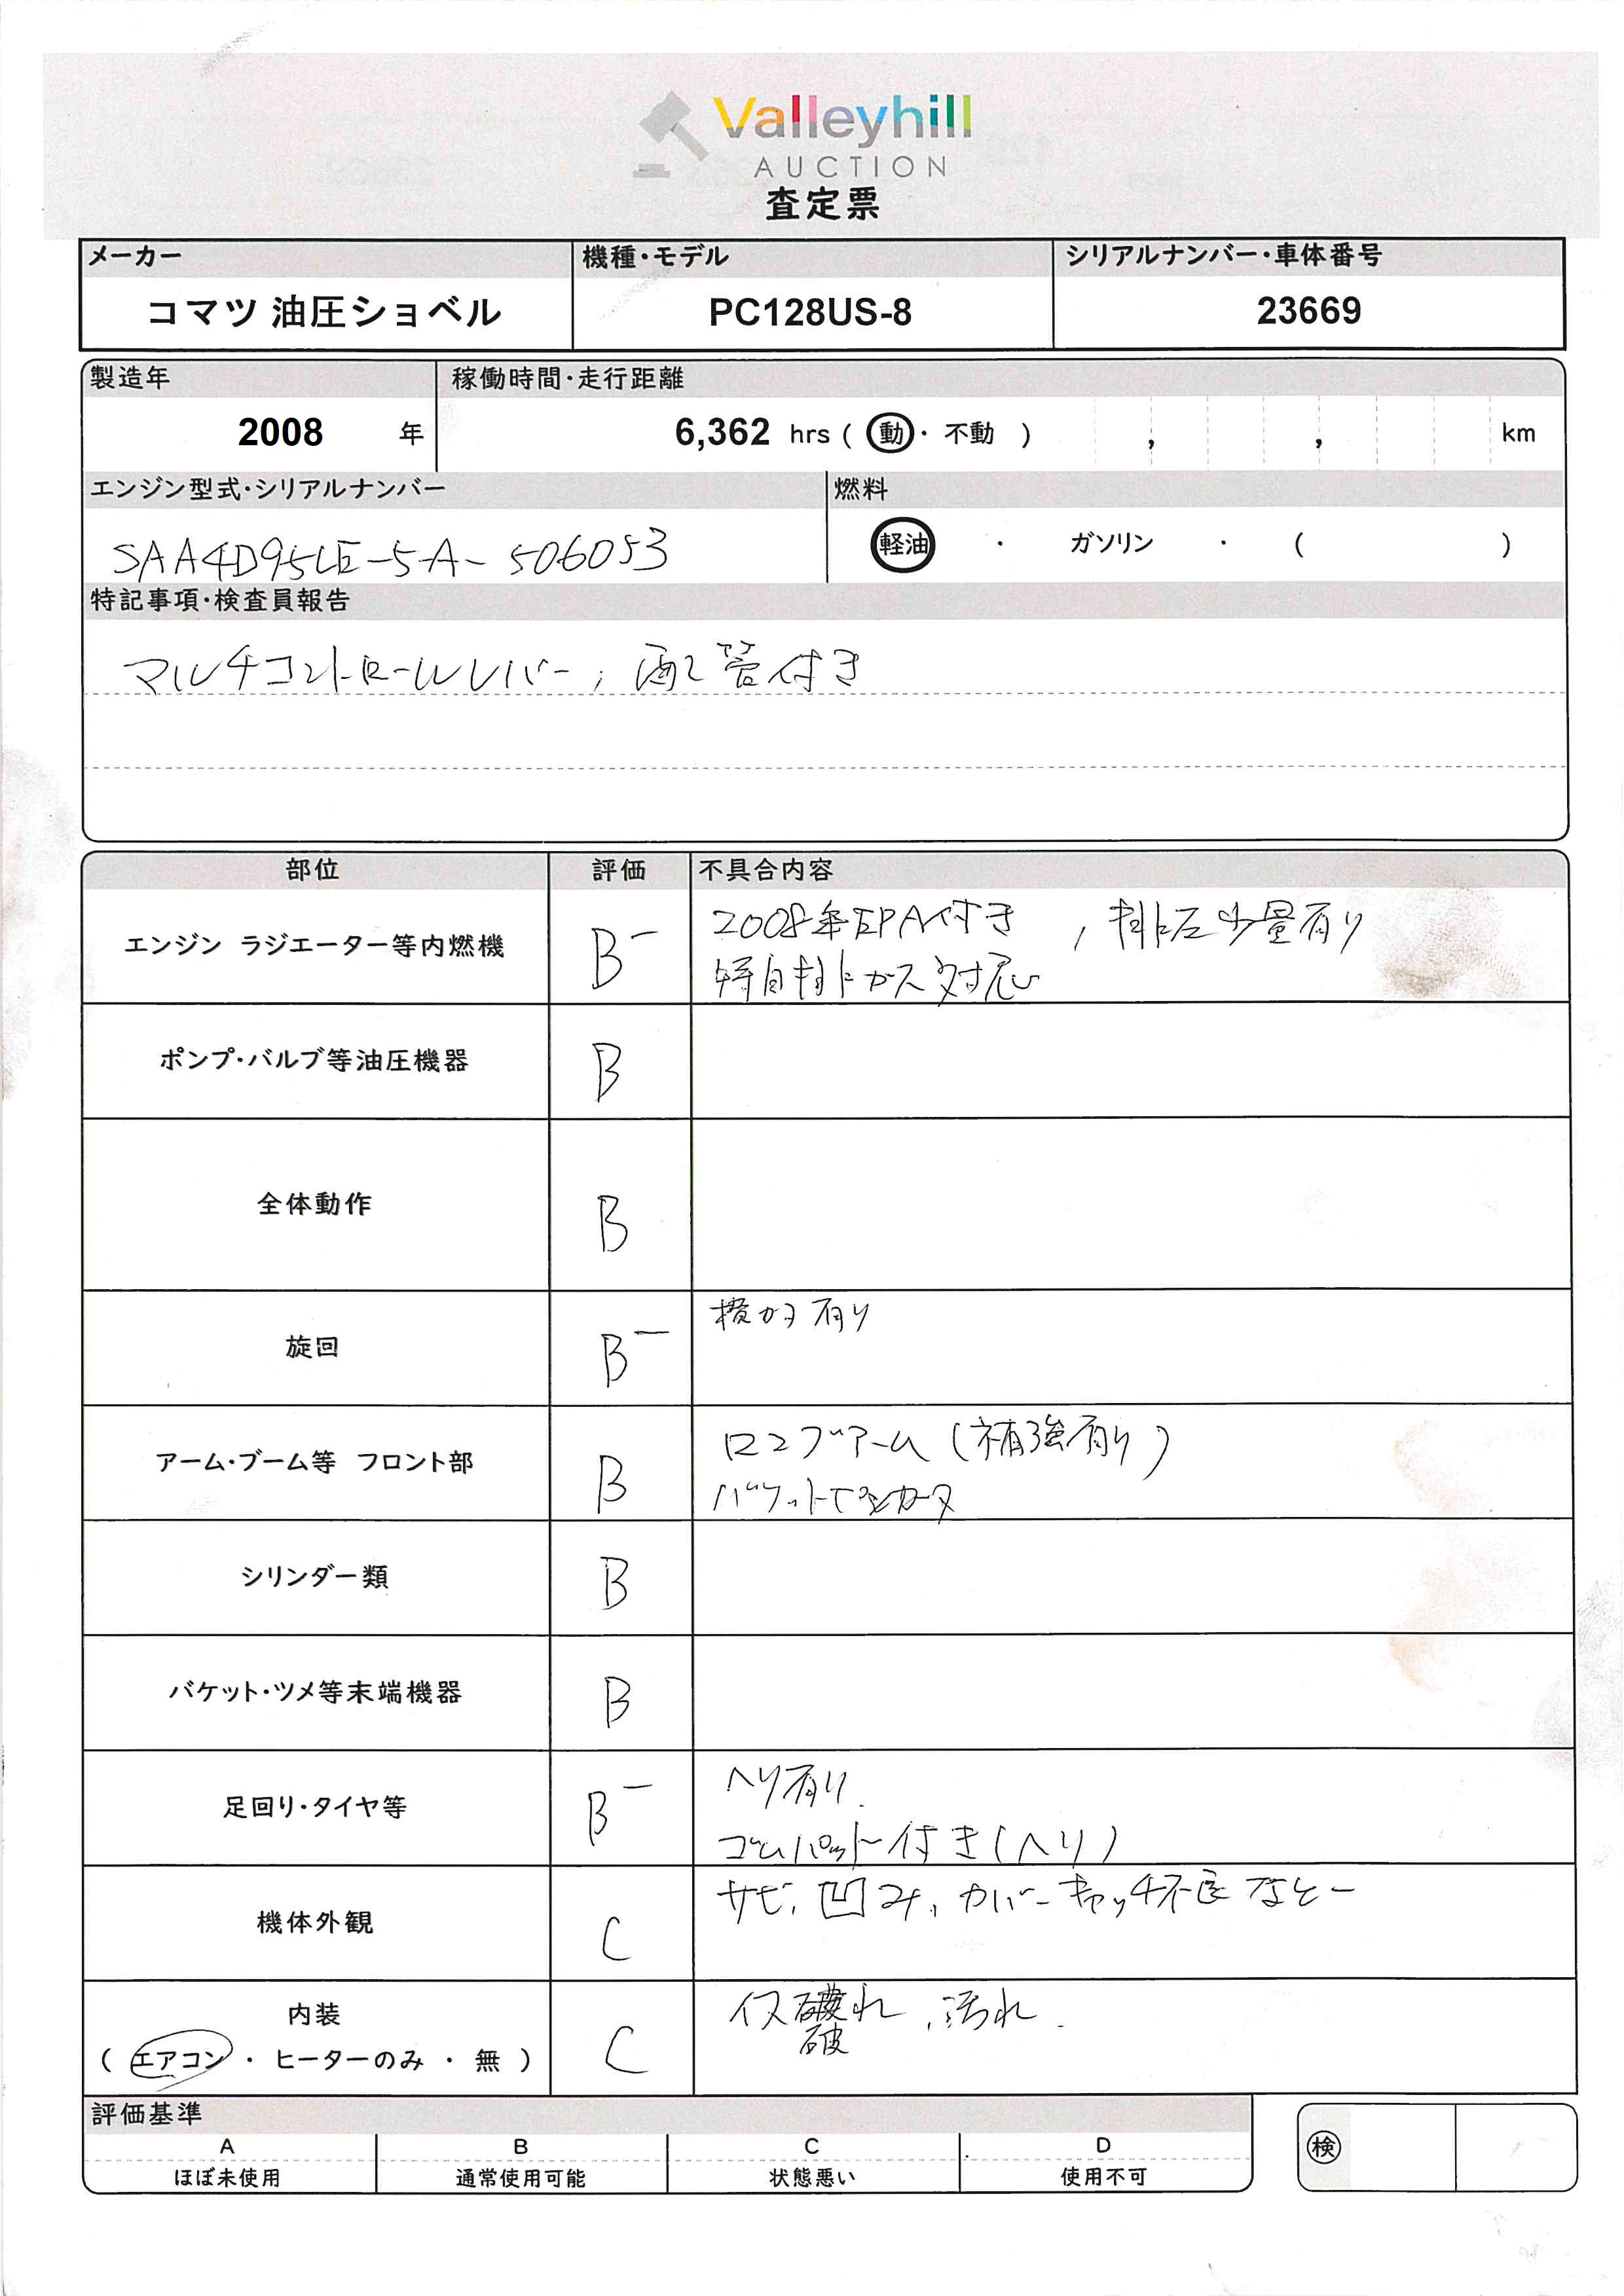 Valleyhill
AUCTION
査定票
メーカー 機種・モデル シリアルナンバー・車体番号
コマツ 油圧ショベル PC128US-8 23669
製造年 稼働時間・走行距離
2008 年 6,362 hrs ( 動 ・ 不動 ) , , km
エンジン型式・シリアルナンバー 燃料
SAA4D95LE-5-A-506053 軽油 ・ ガソリン ・ ( )
特記事項・検査員報告
マルチコントロールレバー, 配管付き
部位 評価 不具合内容
エンジン ラジエーター等内燃機 B- 2008年EPA付き , 排圧少量有り
特自排ガス対応
ポンプ・バルブ等油圧機器 B
全体動作 B
旋回 B- 横ガタ有り
アーム・ブーム等 フロント部 B ロングアーム(補強有り)
バケットピンガタ
シリンダー類 B
バケット・ツメ等末端機器 B
足回り・タイヤ等 B- ヘリ有り.
ゴムパット付き(ヘリ)
機体外観 C サビ, 凹み, カバーキャッチ不良 など
内装 C イス破れ, 汚れ.
( エアコン ・ ヒーターのみ ・ 無 ) 破
評価基準
A B C D
ほぼ未使用 通常使用可能 状態悪い 使用不可
検